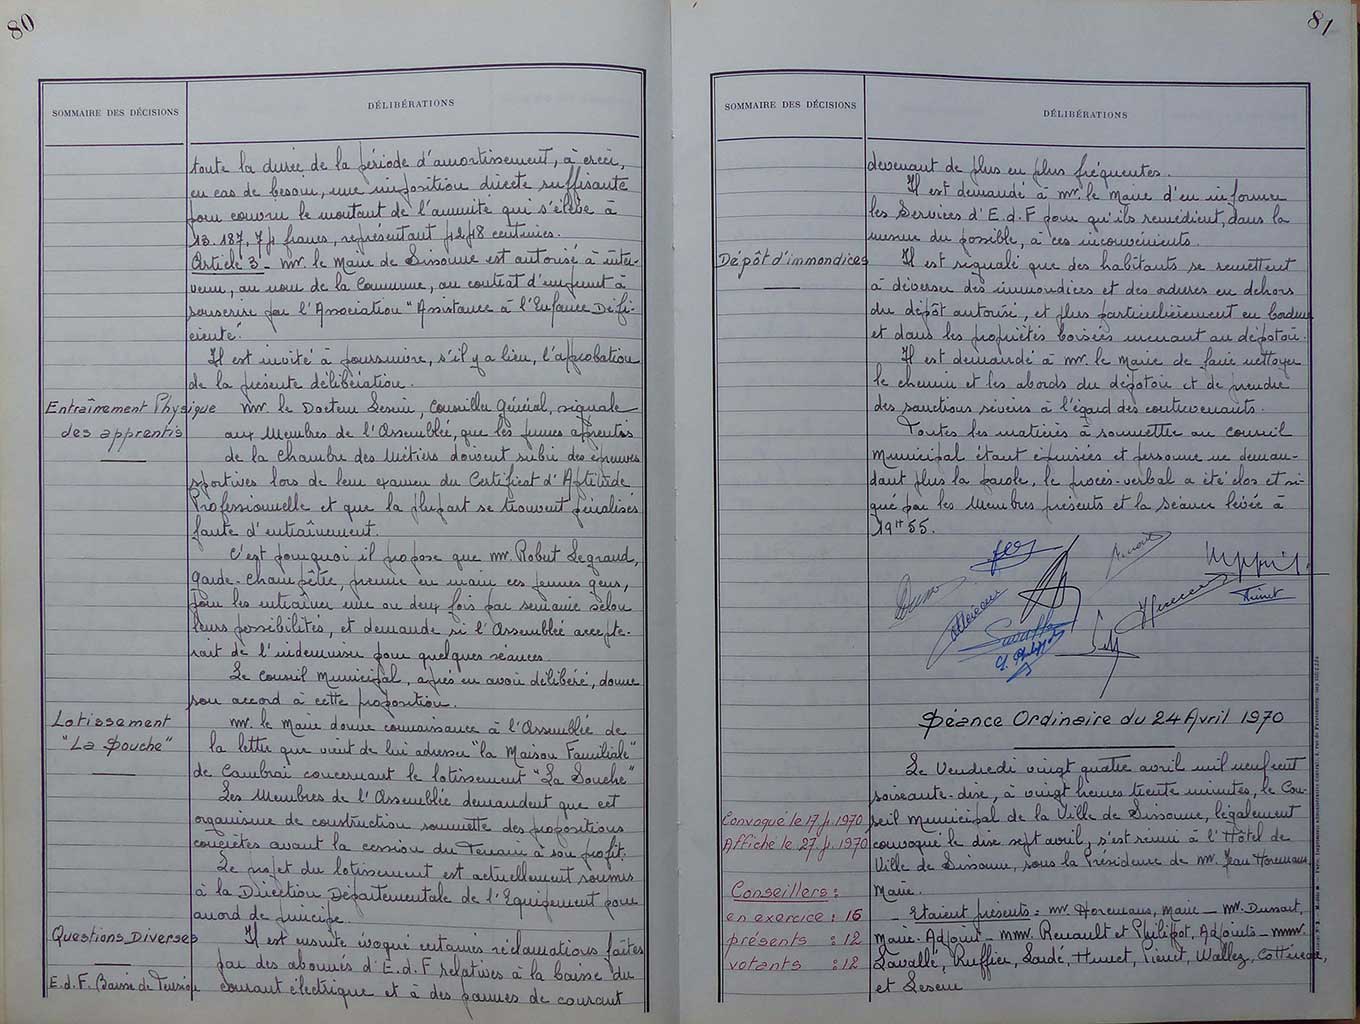 80
SOMMAIRE DES DÉCISIONS
DÉLIBÉRATIONS
toute la durée de la période d'amortissement, à créer,
en cas de besoin, une imposition directe suffisante
pour couvrir le montant de l'annuité qui s'élève à
13.187,74 francs, représentant centimes.
Article 3 - Mr. le Maire de Sissonne est autorisé à inter-
venir, au nom de la Commune, au contrat d'emprunt à
souscrire par l'Association "Assistance à l'Enfance Défi-
ciente".
Il est invité à poursuivre, s'il y a lieu, l'approbation
de la présente délibération.
Entraînement Physique
des apprentis
Mr. le Docteur Leseur, Conseiller Général, signale
aux Membres de l'Assemblée, que les jeunes apprentis
de la Chambre des Métiers doivent subir des épreuves
sportives lors de leur examen du Certificat d'Aptitude
Professionnelle et que la plupart se trouvent pénalisés
faute d'entraînement.
C'est pourquoi il propose que Mr. Robert Legrand,
Garde-Champêtre, prenne en main ces jeunes gens,
pour les entraîner une ou deux fois par semaine selon
leurs possibilités, et demande si l'Assemblée accepte-
rait de l'indemniser pour quelques séances.
Le Conseil Municipal, après en avoir délibéré, donne
son accord à cette proposition.
Lotissement
"La Souche"
Mr. le Maire donne connaissance à l'Assemblée de
la lettre que vient de lui adresser "la Maison Familiale"
de Cambrai concernant le lotissement "La Souche"
Les Membres de l'Assemblée demandent que cet
organisme de construction soumette des propositions
concrètes avant la cession du Terrain à son profit.
Le projet du lotissement est actuellement soumis
à la Direction Départementale de l'Equipement pour
accord de principe.
Questions Diverses
E.d.F. Baisse de Tension
Il est ensuite évoqué certaines réclamations faites
par des abonnés d'E.d.F relatives à la baisse du
courant électrique et à des pannes de courant
81
SOMMAIRE DES DÉCISIONS
DÉLIBÉRATIONS
devenant de plus en plus fréquentes.
Il est demandé à Mr. le Maire d'en informer
les Services d'E.d.F pour qu'ils remédient, dans la
mesure du possible, à ces inconvénients.
Dépôt d'immondices
Il est signalé que des habitants se remettent
à déverser des immondices et des ordures en dehors
du dépôt autorisé, et plus particulièrement en bordure
et dans les propriétés boisées menant au dépotoir.
Il est demandé à Mr. le Maire de faire nettoyer
le chemin et les abords du dépotoir et de prendre
des sanctions sévères à l'égard des contrevenants.
Toutes les matières à soumettre au Conseil
Municipal étant épuisées et personne ne deman-
dant plus la parole, le procès-verbal a été clos et si-
gné par les Membres présents et la séance levée à
19H55.
Séance Ordinaire du 24 Avril 1970
Convoqué le 17.4.1970
Affiché le 27.4.1970
Le Vendredi vingt quatre avril mil neuf cent
soixante-dix, à vingt heures trente minutes, le Con-
seil Municipal de la Ville de Sissonne, légalement
convoqué le dix sept avril, s'est réuni à l'Hôtel de
Ville de Sissonne, sous la Présidence de Mr. Jean Horemans,
Maire.
Conseillers :
en exercice : 16
présents : 12
votants : 12
- Etaient présents : Mr. Horemans, Maire - Mr. Dussart,
Maire-Adjoint - MMr. Renault et Philippot, Adjoints - MMr.
Lavallé, Ruffier, Huet, Wallez,
et Leseur